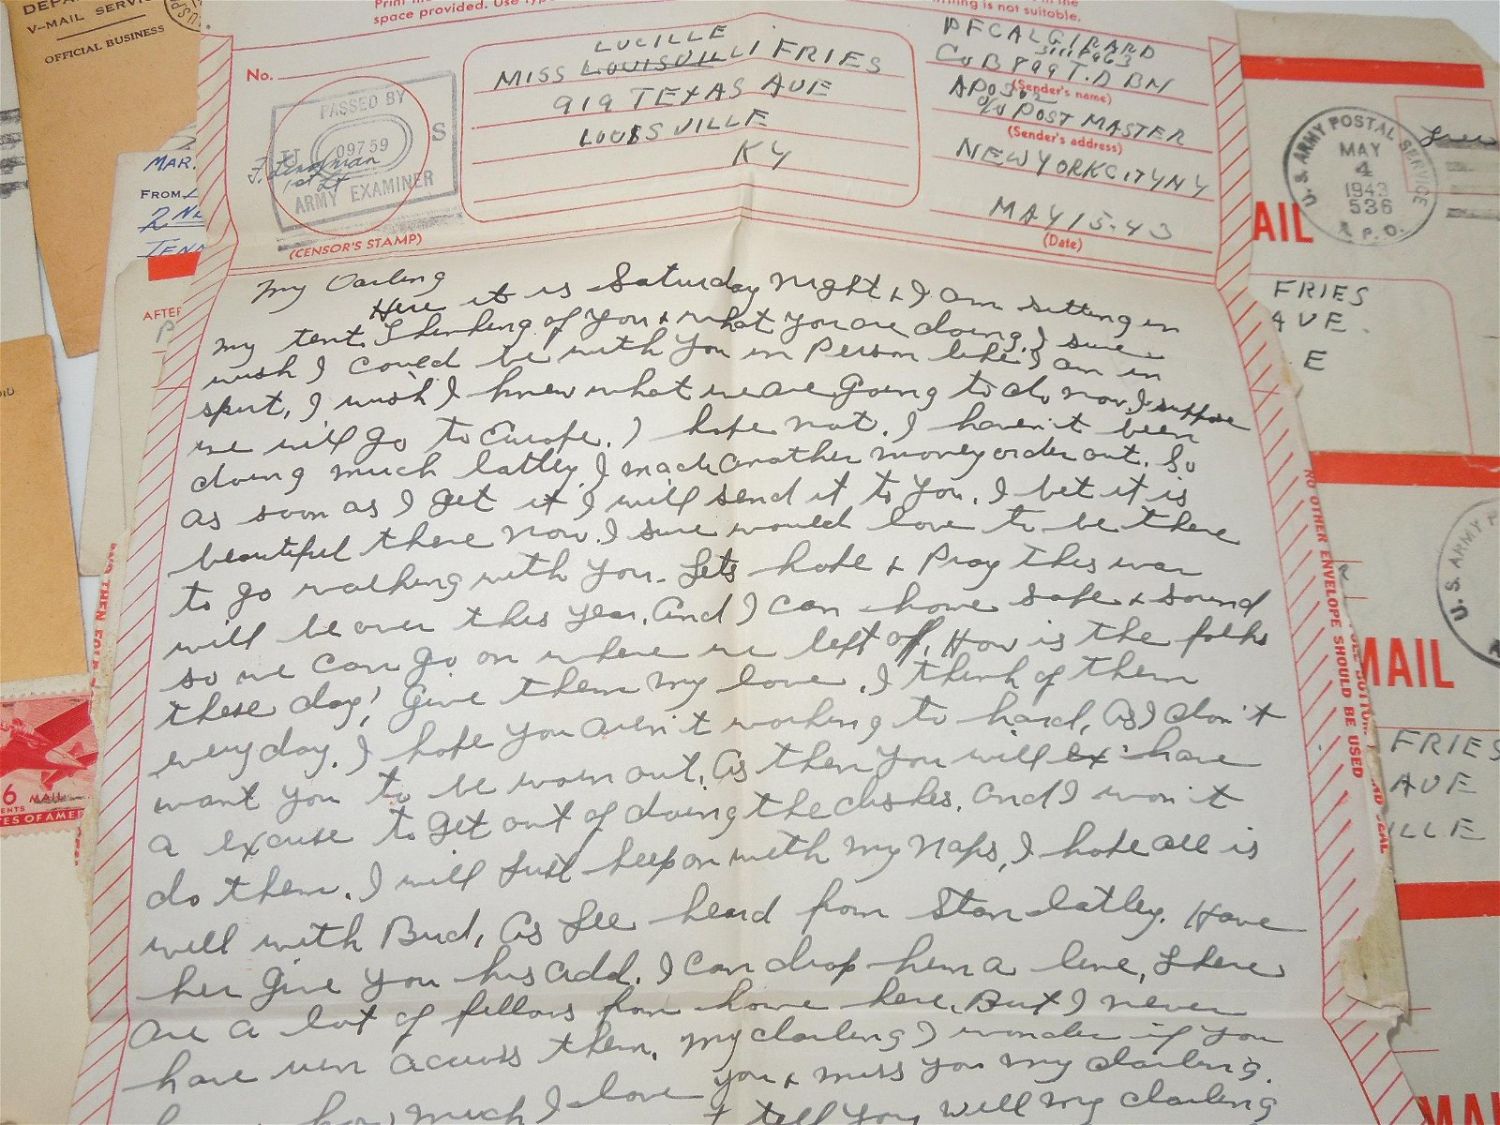 V-MAIL SERVICE
OFFICIAL BUSINESS
MAR.
FROM
2 NE
TENN
AFTER
6
CENTS
MAIL
TES OF AME
space provided. Use
is not suitable.
No.
PASSED BY
U S
09759
ARMY EXAMINER
1st Lt
(CENSOR'S STAMP)
LUCILLE
MISS LOUISVILLI FRIES
919 TEXAS AVE
LOUISVILLE
KY
PFC AL GIRARD
Co B 899 T.D BN
(Sender's name)
APO 302
c/o POST MASTER
(Sender's address)
NEW YORK CITY NY
MAY 15-43
(Date)
My Darling
Here it is Saturday night & I am sitting in
my tent. Thinking of you & what you are doing. I sure
wish I could be with you in Person like I am in
spirt, I wish I knew what we are going to do now. I suppose
we will go to Europe. I hope not. I haven't been
doing much latley. I made another money order out. So
as soon as I get it I will send it to you. I bet it is
beautiful there now. I sure would love to be there
to go walking with you. Lets hope & Pray this war
will be over this year. And I can home safe & sound
so we can go on where we left off. How is the folks
these day! Give them my love. I think of them
every day. I hope you aren't working to hard, As I don't
want you to be worn out. As then you will have
a excuse to get out of doing the dishes. And I won't
do them. I will just keep on with my naps, I hope all is
well with Bud, As Lee heard from Stan latley. Have
her give you his add. I can drop him a line, There
are a lot of fellows from home here. But I never
have run across them. My darling I wonder if you
how much I love you & miss you my darling.
I tell you well my darling
U. S. ARMY POSTAL SERVICE
MAY
4
1943
536
A.P.O.
AIL
FRIES
AVE.
E
NO OTHER ENVELOPE SHOULD BE USED
U. S. ARMY P
MAIL
FRIES
AVE
ILLE
MAI